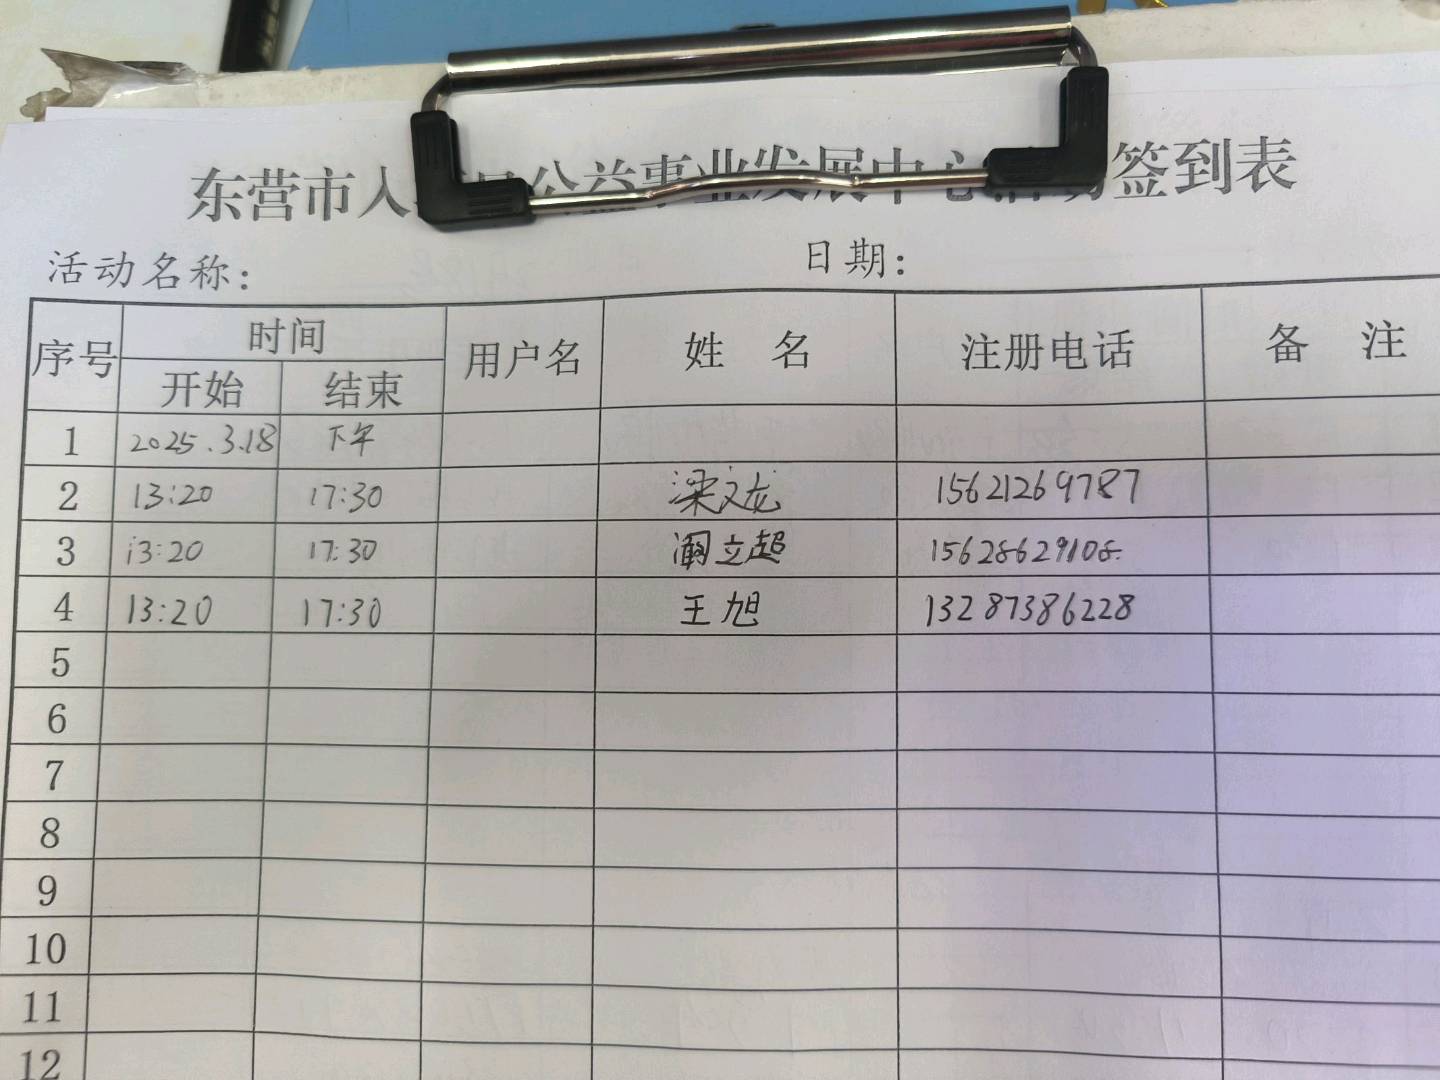 东营市人 公益事业发展中心活动签到表
活动名称： 日期：
序号 时间 用户名 姓 名 注册电话 备 注
开始 结束
1 2025.3.18 下午
2 13:20 17:30 梁文龙 15621269787
3 13:20 17:30 阚立超 15628629108
4 13:20 17:30 王旭 13287386228
5
6
7
8
9
10
11
12